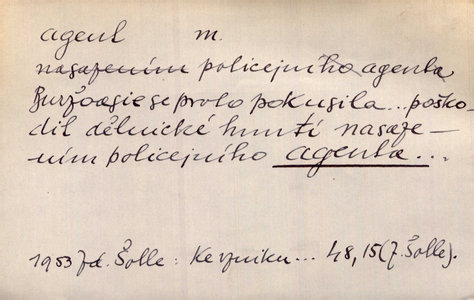 agent m.
nasazením policejního agenta
Buržoasie se proto pokusila... poško-
dit dělnické hnutí nasaze-
ním policejního agenta...
1953 Zd. Šolle: Ke vzniku... 48,15 (Z. Šolle).